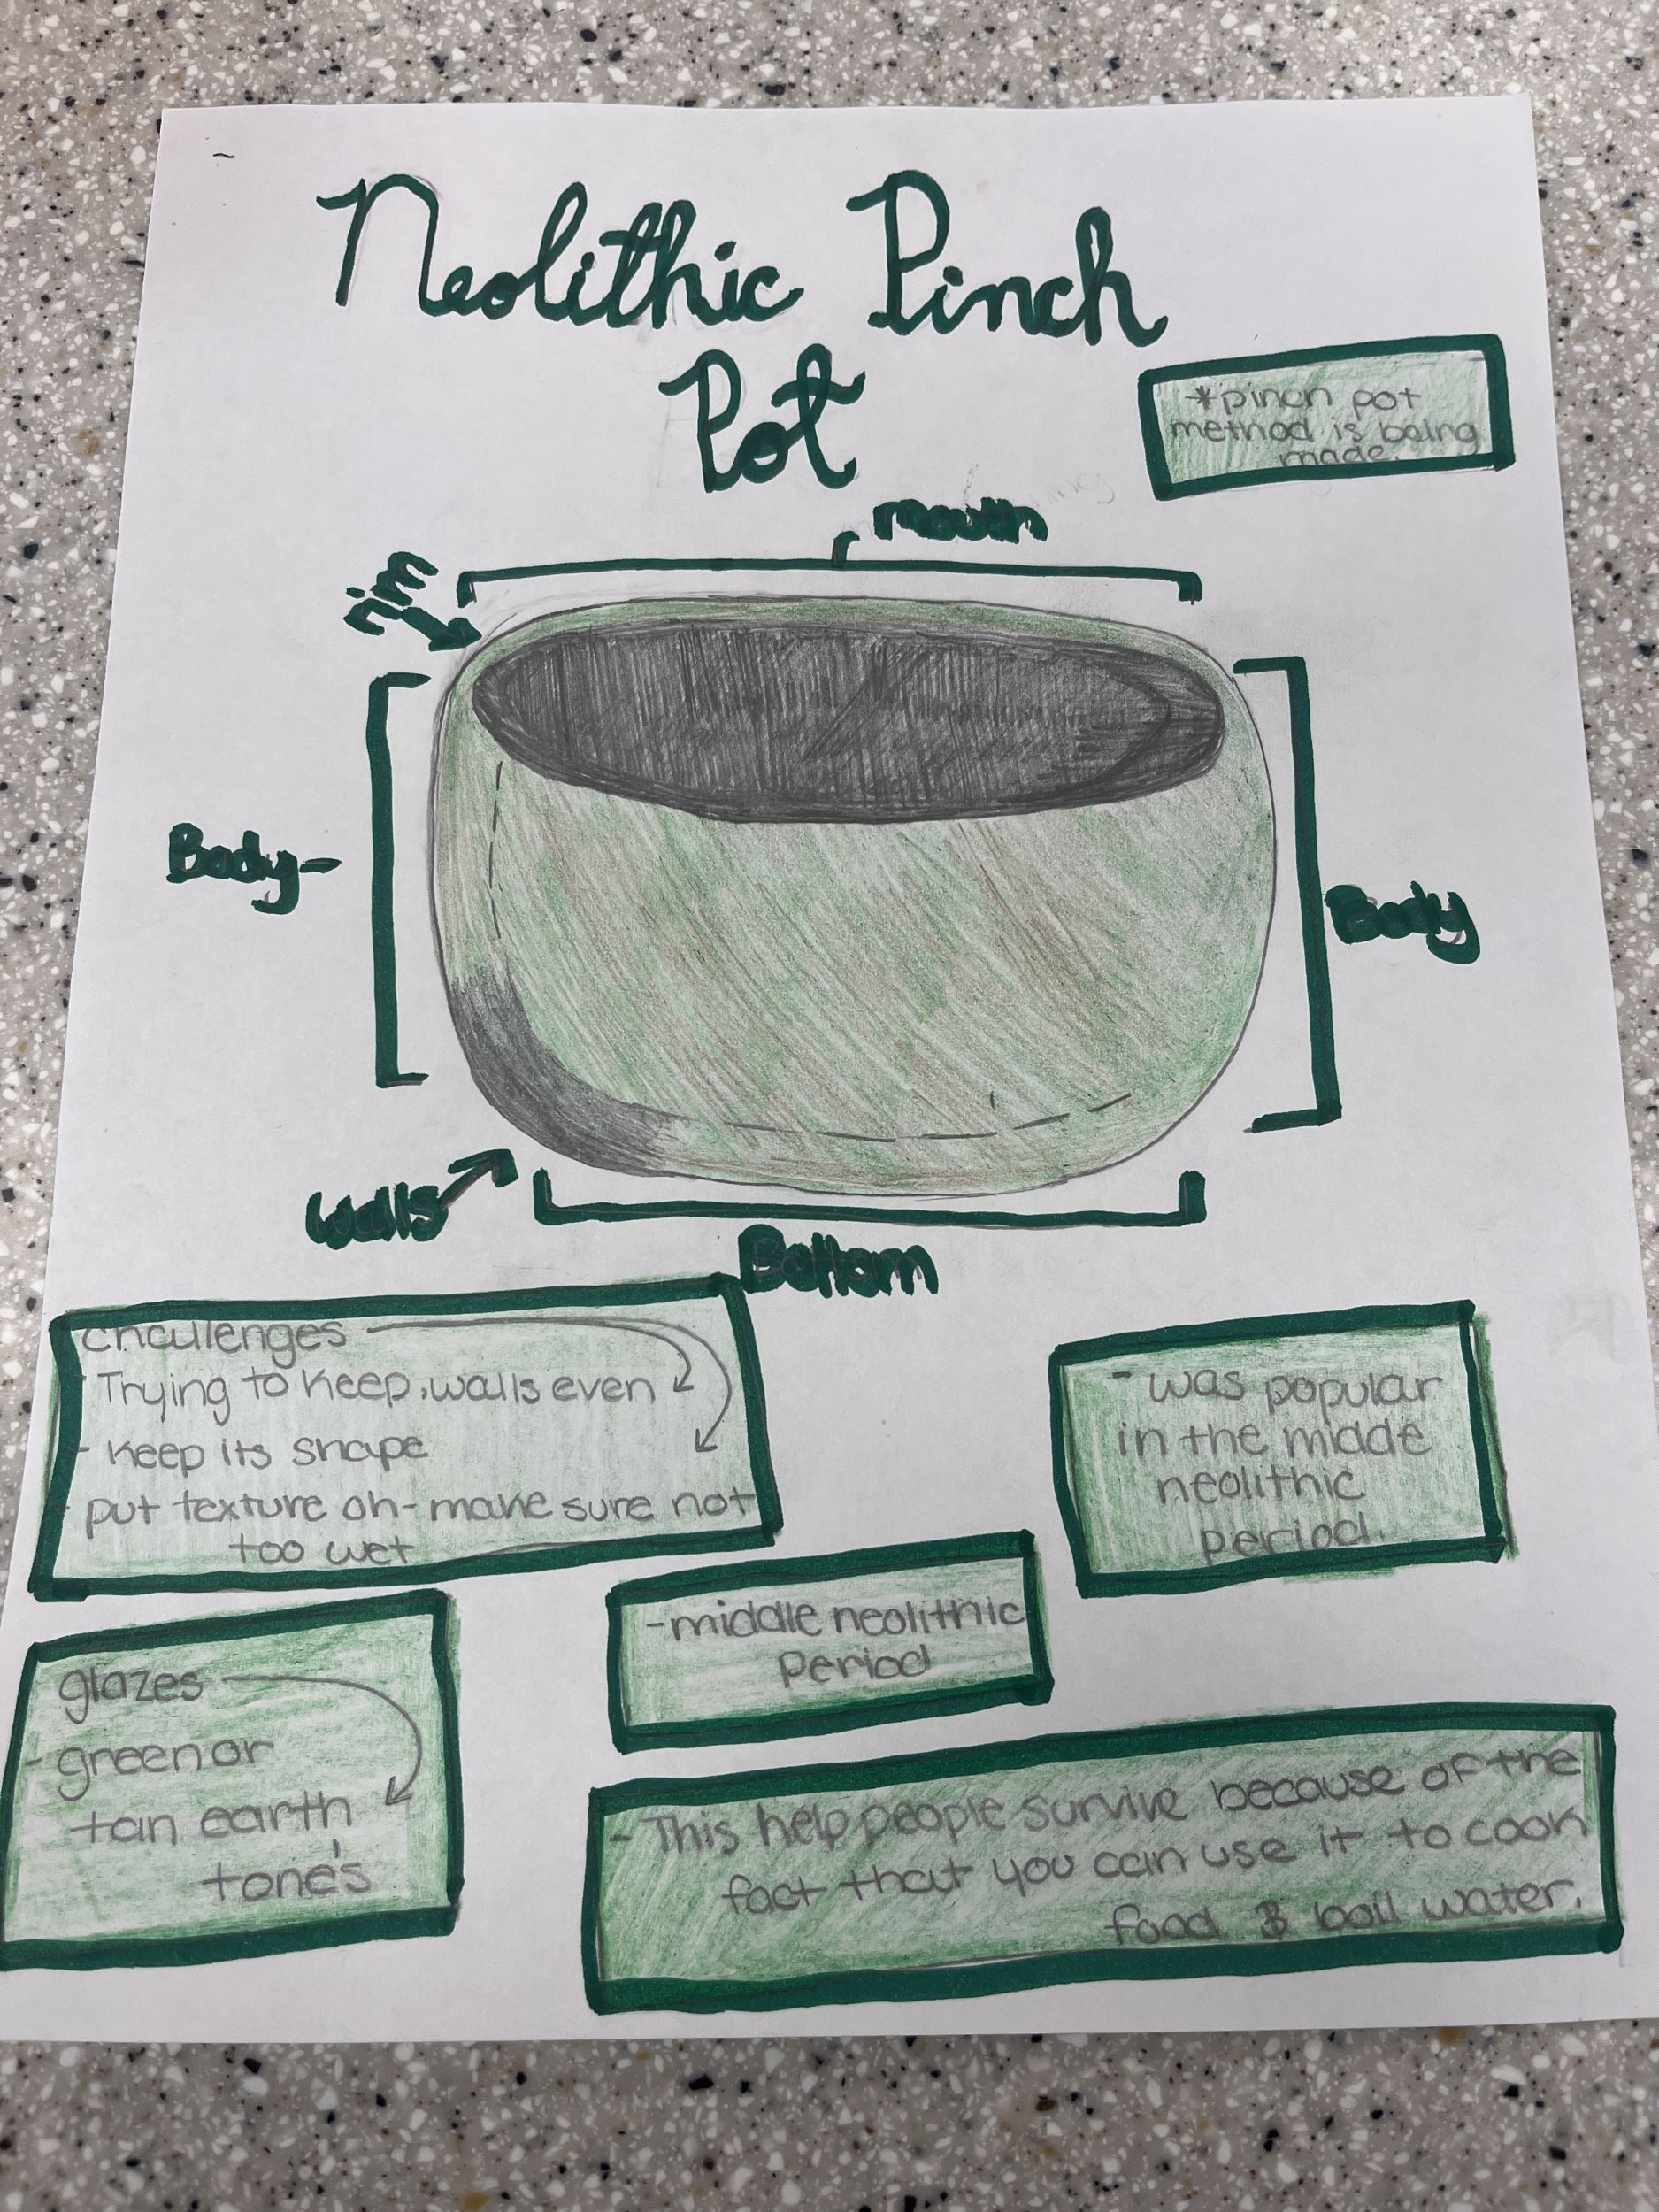 Neolithic Pinch
Pot
*pinch pot
method is being
made.
mouth
rim
Body-
Body
walls
Bottom
challenges
- Trying to keep walls even
- keep its shape
- put texture on - make sure not
too wet
- was popular
in the midde
neolithic
period.
- middle neolithic
period
glazes
- green or
tan earth
tone's
- This help people survive because of the
fact that you can use it to cook
food & boil water.